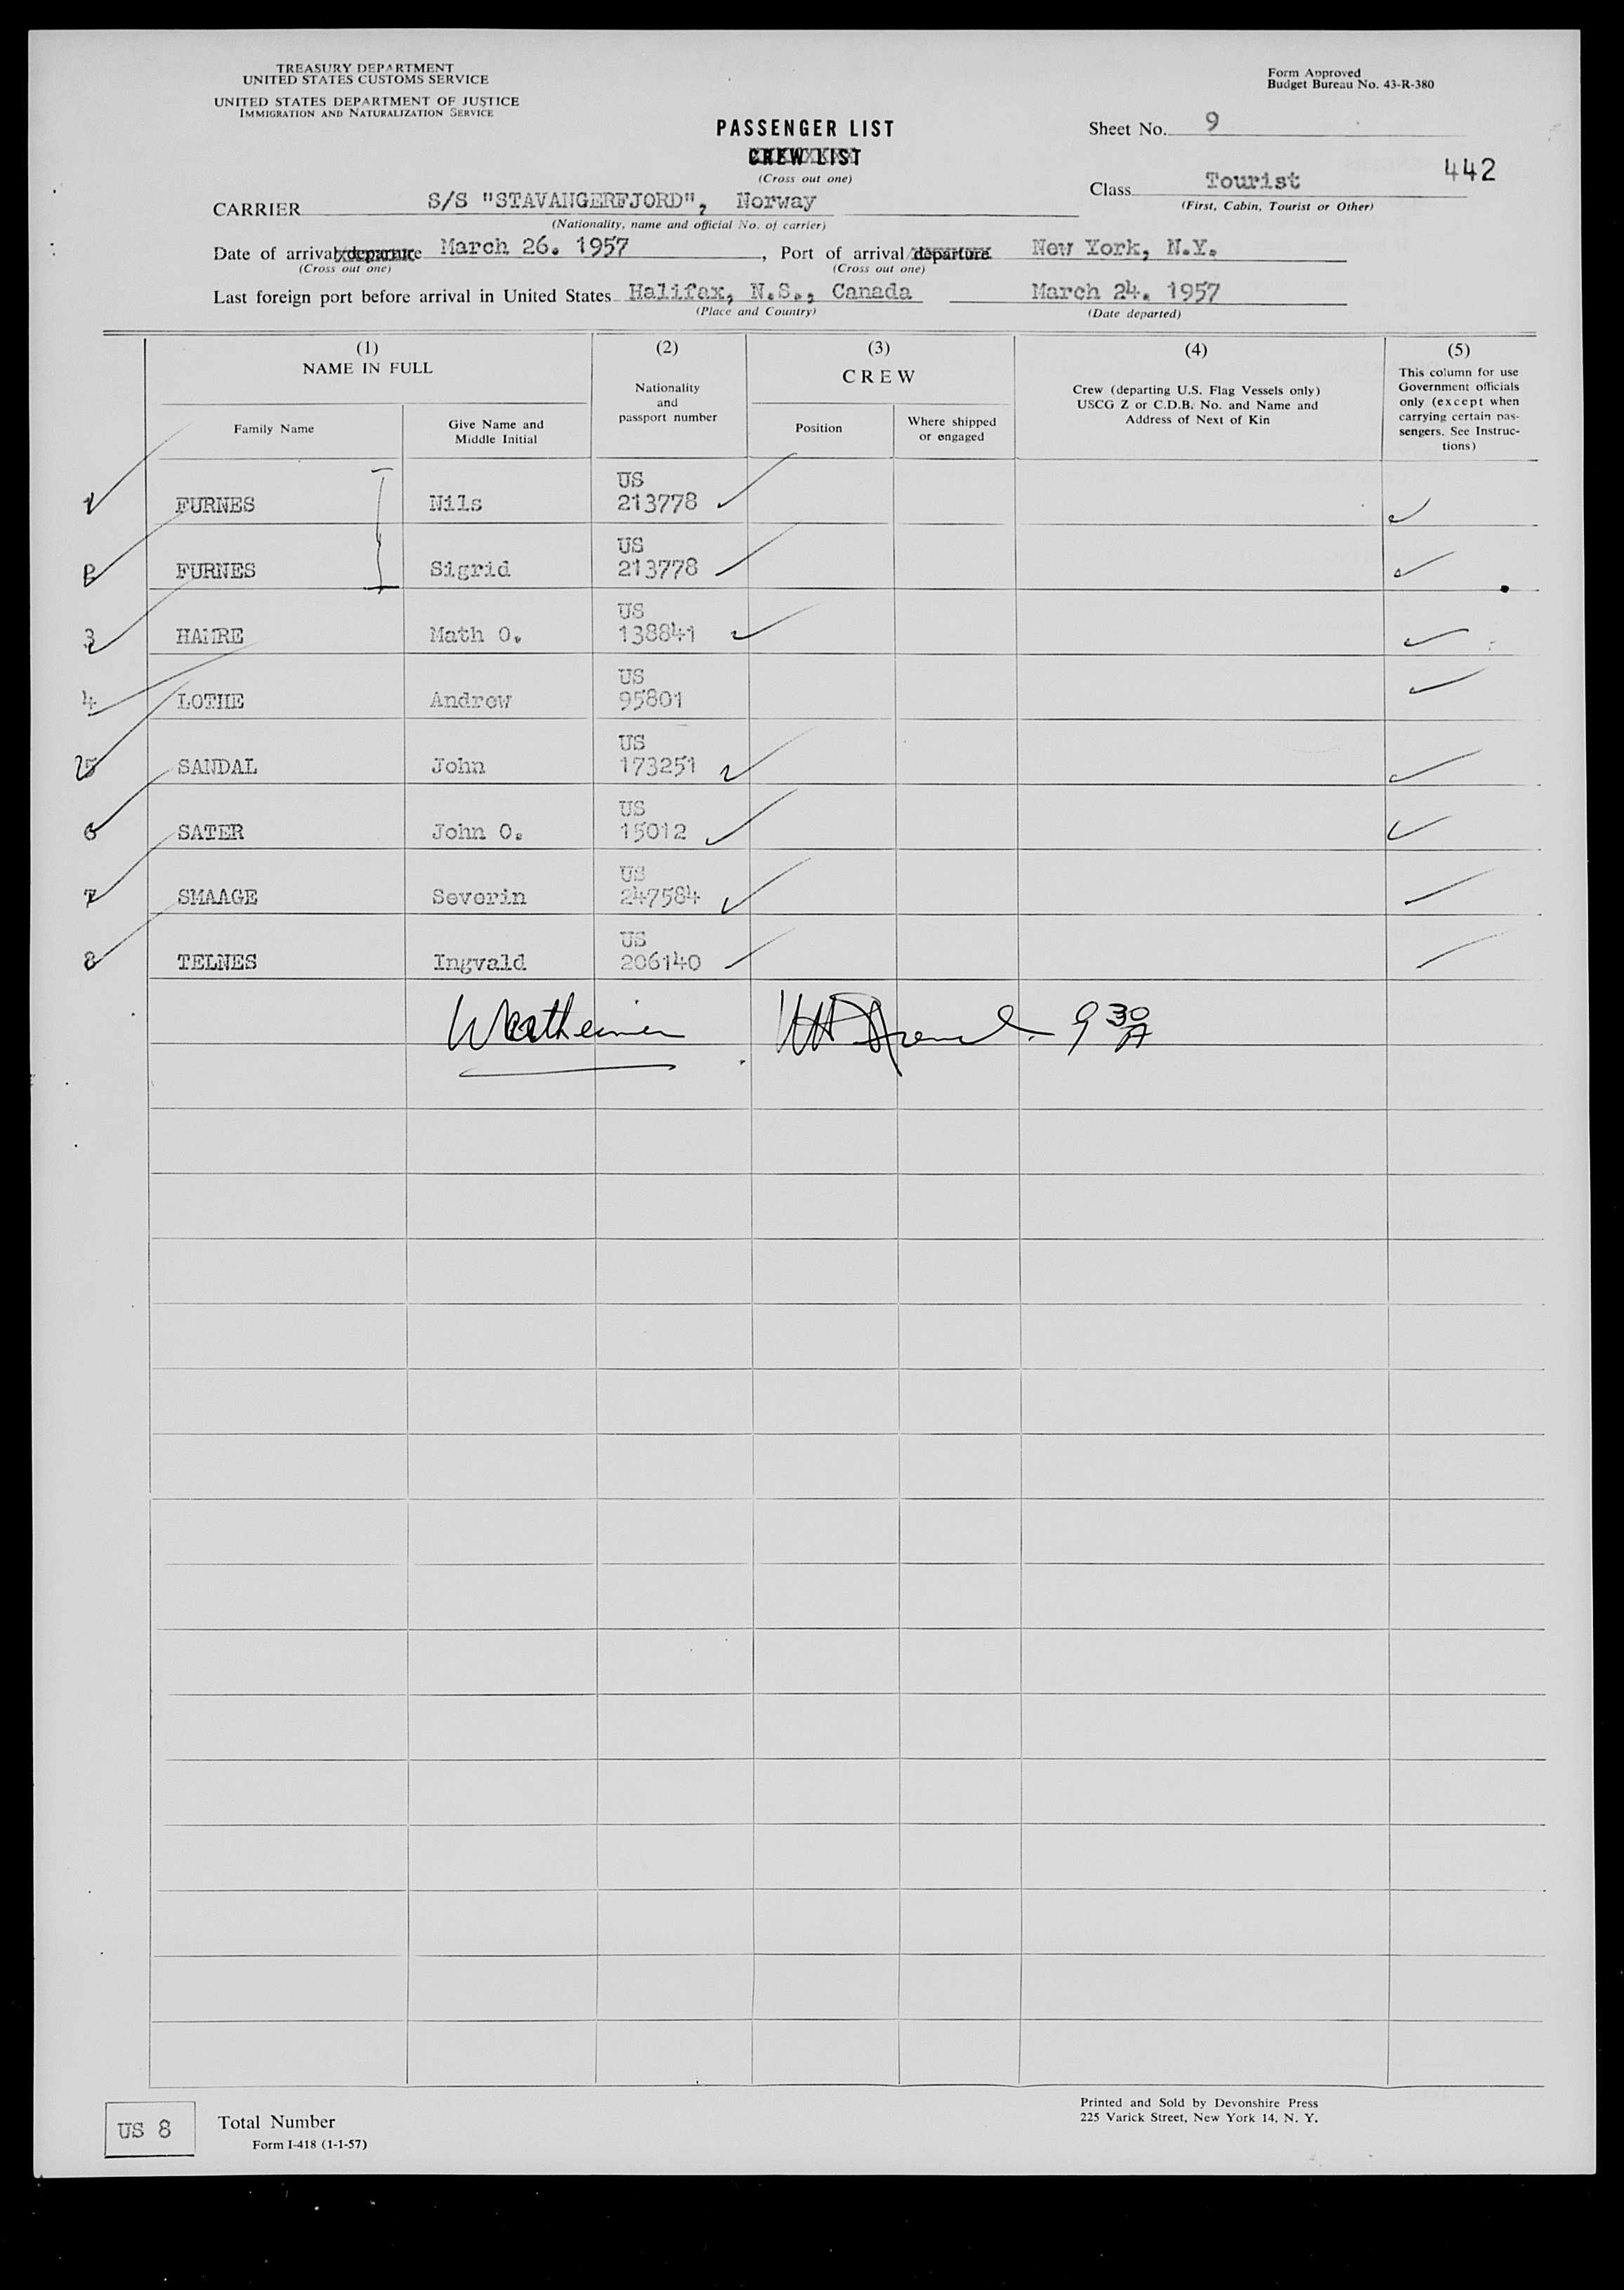 TREASURY DEPARTMENT
UNITED STATES CUSTOMS SERVICE
UNITED STATES DEPARTMENT OF JUSTICE
IMMIGRATION AND NATURALIZATION SERVICE
Form Approved
Budget Bureau No. 43-R-380
PASSENGER LIST
CREW LIST
(Cross out one)
Sheet No. 9
442
Class Tourist
(First, Cabin, Tourist or Other)
CARRIER S/S "STAVANGERFJORD", Norway
(Nationality, name and official No. of carrier)
Date of arrival/departure March 26. 1957, Port of arrival/departure New York, N.Y.
(Cross out one) (Cross out one)
Last foreign port before arrival in United States Halifax, N.S., Canada March 24. 1957
(Place and Country) (Date departed)
(1) (2) (3) (4) (5)
NAME IN FULL
Family Name
Give Name and
Middle Initial
Nationality
and
passport number
CREW
Position
Where shipped
or engaged
Crew (departing U.S. Flag Vessels only)
USCG Z or C.D.B. No. and Name and
Address of Next of Kin
This column for use
Government officials
only (except when
carrying certain pas-
sengers. See Instruc-
tions)
US
1 FURNES Nils 213778
US
2 FURNES Sigrid 213778
US
3 HAMRE Math O. 138841
US
4 LOTHE Andrew 95801
US
5 SANDAL John 173251
US
6 SATER John O. 15012
US
7 SMAAGE Severin 247584
US
8 TELNES Ingvald 206140
Wertheimer 9 30 A
US 8 Total Number
Form I-418 (1-1-57)
Printed and Sold by Devonshire Press
225 Varick Street, New York 14, N. Y.